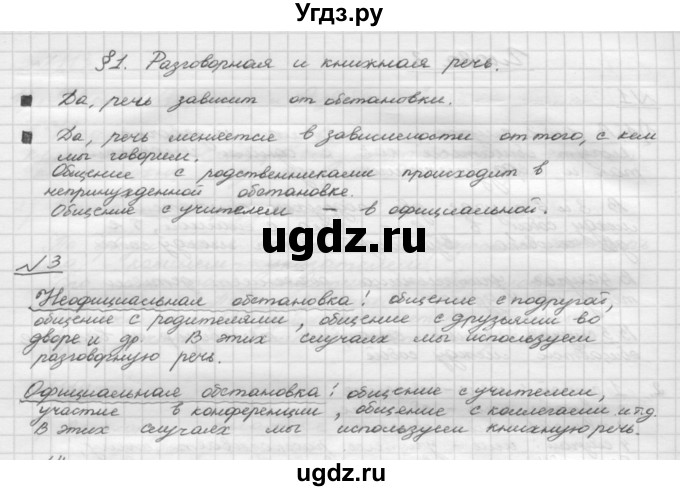 Угдз.ру
§1. Разговорная и книжная речь.
Да, речь зависит от обстановки.
Да, речь меняется в зависимости от того, с кем
мы говорим.
Общение с родственниками происходит в
непринужденной обстановке.
Общение с учителем – в официальной.
ugdz.ru
№3
Неофициальная обстановка: общение с подругой,
общение с родителями, общение с друзьями во
дворе и др. В этих случаях мы используем
разговорную речь.
Официальная обстановка: общение с учителем,
участие в конференции, общение с коллегами и т.д.
В этих случаях мы используем книжную речь.
ugdz.ru